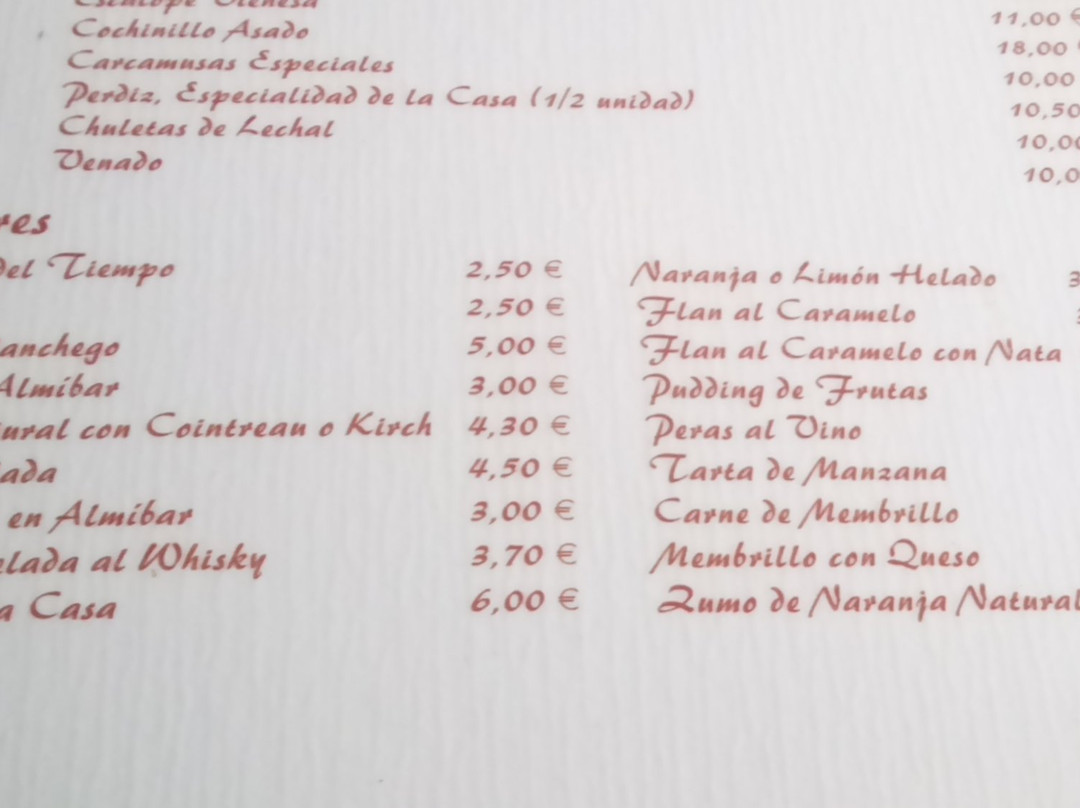 Escalope Vienesa 11,00 €
Cochinillo Asado 18,00
Carcamusas Especiales 10,00
Perdiz, Especialidad de la Casa (1/2 unidad) 10,50
Chuletas de Lechal 10,00
Venado 10,0
res
del Tiempo 2,50 € Naranja o Limón Helado 3
2,50 € Flan al Caramelo
anchego 5,00 € Flan al Caramelo con Nata
Almíbar 3,00 € Pudding de Frutas
ural con Cointreau o Kirch 4,30 € Peras al Vino
ada 4,50 € Tarta de Manzana
en Almíbar 3,00 € Carne de Membrillo
elada al Whisky 3,70 € Membrillo con Queso
a Casa 6,00 € Zumo de Naranja Natural